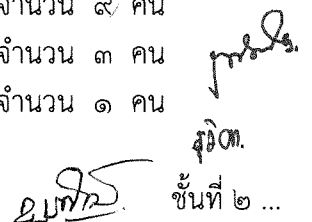 จำนวน ๙ คน
จำนวน ๓ คน
จำนวน ๑ คน
ชั้นที่ ๒ ...